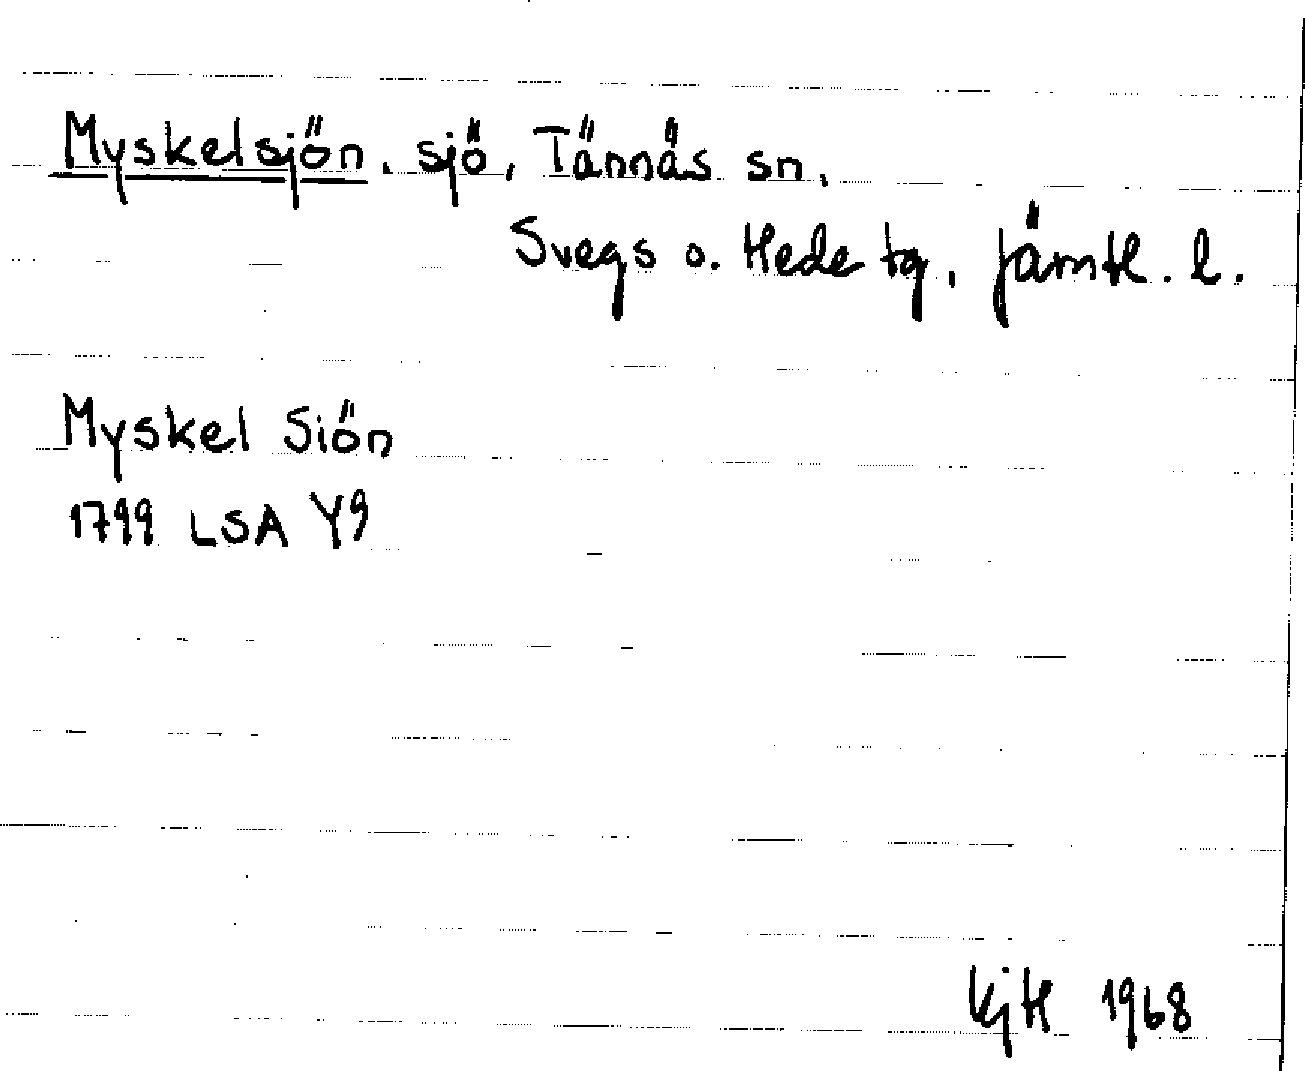 Myskelsjön, sjö, Tännäs sn,
Svegs o. Hede tg, Jämtl. l.
Myskel Siön
1799 LSA Y9
KjH 1968